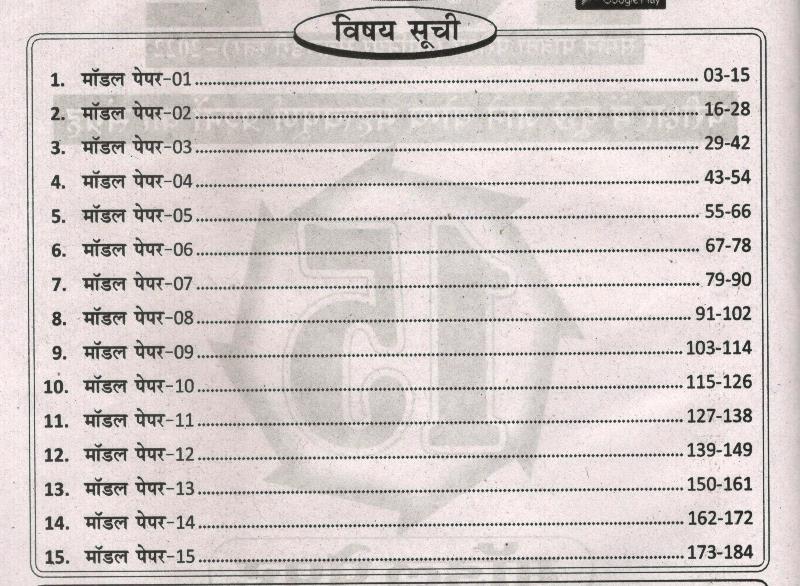 विषय सूची
1. मॉडल पेपर-01 03-15
2. मॉडल पेपर-02 16-28
3. मॉडल पेपर-03 29-42
4. मॉडल पेपर-04 43-54
5. मॉडल पेपर-05 55-66
6. मॉडल पेपर-06 67-78
7. मॉडल पेपर-07 79-90
8. मॉडल पेपर-08 91-102
9. मॉडल पेपर-09 103-114
10. मॉडल पेपर-10 115-126
11. मॉडल पेपर-11 127-138
12. मॉडल पेपर-12 139-149
13. मॉडल पेपर-13 150-161
14. मॉडल पेपर-14 162-172
15. मॉडल पेपर-15 173-184